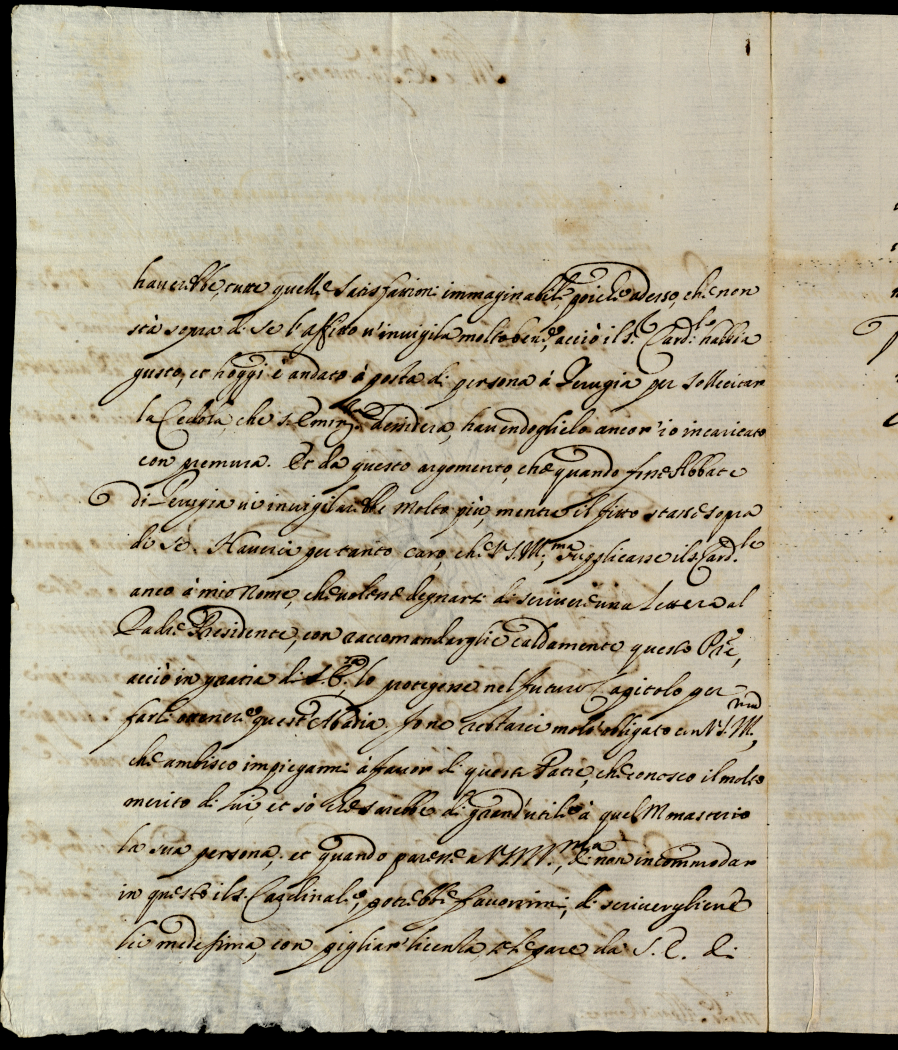 haverebbe, tutte quelle satisfationi immaginabili, poiche adesso, che non
stà sopra di se l'affitto v'invigila molto bene, acciò il s.r Card.le habbia
gusto, et hoggi è andato à posta di persona à Perugia per sollecitar
la Cedola, che s. Emin.za desidera, havendoglielo ancor'io incaricato
con premura. Et da questo argomento, che quando fosse Abbate
di Perugia vi invigilarebbe molto più, mentre il fitto stasse sopra
di se. Haverei per tanto caro, che V.S.M.ma supplicasse il s. Card.le
anco à mio nome, che volesse degnarsi di scrivere una lettera al
Padre Presidente, con raccomandargli caldamente questo Pre,
acciò in gratia di S. lo protegesse nel futuro Capitolo per
farli ottenere quest'Abadia. Io ne restarei molto obligato con V.S.M.,
che ambisco impiegarmi à favor di questi Patre, che conosco il molto
merito di lui, et sò che sarebbe di grand'utile à quel Monasterio
la sua persona, et quando paresse a V.S.M.ma di non incommodar
in questo il s. Cardinale, potrebbe favorirmi, di scrivergliene
lei medesima, con pigliar licenza da S. E. di